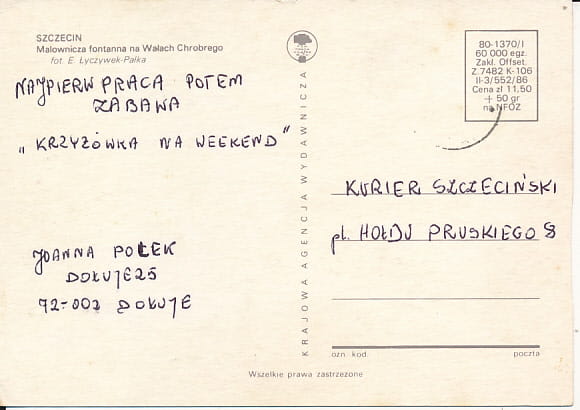 SZCZECIN
Malownicza fontanna na Wałach Chrobrego
fot. E. Łyczywek-Pałka
NAJPIERW PRACA POTEM
ZABAWA
„KRZYŻÓWKA NA WEEKEND"
JOANNA POLEK
DOŁUJE 25
72-002 DOŁUJE
KRAJOWA AGENCJA WYDAWNICZA
80-1370/I
60 000 egz.
Zakł. Offset.
Z. 7482 K-106
II-3/552/86
Cena zł 11,50
+ 50 gr
na NFOZ
KURIER SZCZECIŃSKI
pl. HOŁDU PRUSKIEGO 8
ozn. kod. poczta
Wszelkie prawa zastrzeżone